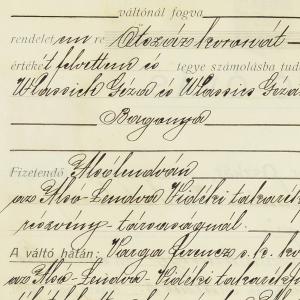 váltónál fogva
rendelet em re Ötszáz koronát
értéke t felvettem és tegye számolásba tud
Wlassich Géza és Wlassics Géza
Bagonya
Fizetendő Alsólendván
az Alsó-Lendva Vidéki takaré
részvény-társaságnál.
A váltó hátán: Varga Ferencz s. k. k
az Alsó-Lendva Vidéki takarékp